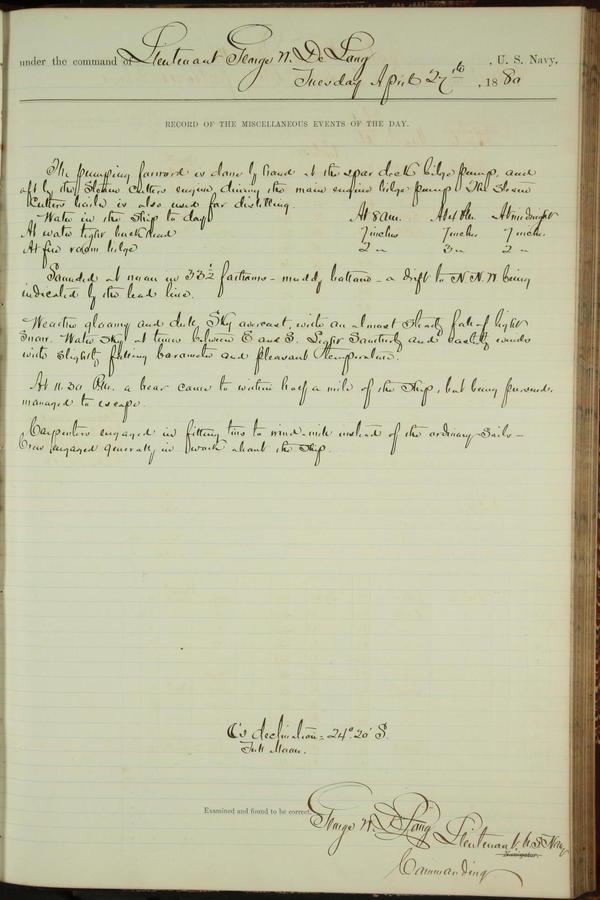 under the command of Lieutenant George W. De Long, U. S. Navy,
Tuesday April 27th, 1880
RECORD OF THE MISCELLANEOUS EVENTS OF THE DAY.
The pumping forward is done by hand at the spar deck bilge pump, and
aft by the Steam Cutters engine driving the main engine bilge pump. The Steam
Cutters boiler is also used for distilling.
Water in the Ship to day At 8 am. At 4 Pm. At midnight
At water tight bulkhead 7 inches 7 inches 7 inches.
At fire room bilge 2 " 3 " 2 "
Sounded at noon in 33½ fathoms - muddy bottom - a drift to N N W being
indicated by the lead line.
Weather gloomy and dull, Sky overcast, with an almost steady fall of light
Snow. Water Sky at times between E and S. Light Southerly and easterly winds
with slightly falling barometer and pleasant temperature.
At 11.30 Pm. a bear came to within half a mile of the Ship, but being pursued
managed to escape.
Carpenters engaged in fitting to wind-mill instead of the ordinary Sails -
Crew engaged generally in work about the Ship.
☾'s declination = 24° 20' S.
Full Moon.
Examined and found to be correct.
George W. De Long Lieutenant U. S. Navy
Navigator.
Commanding